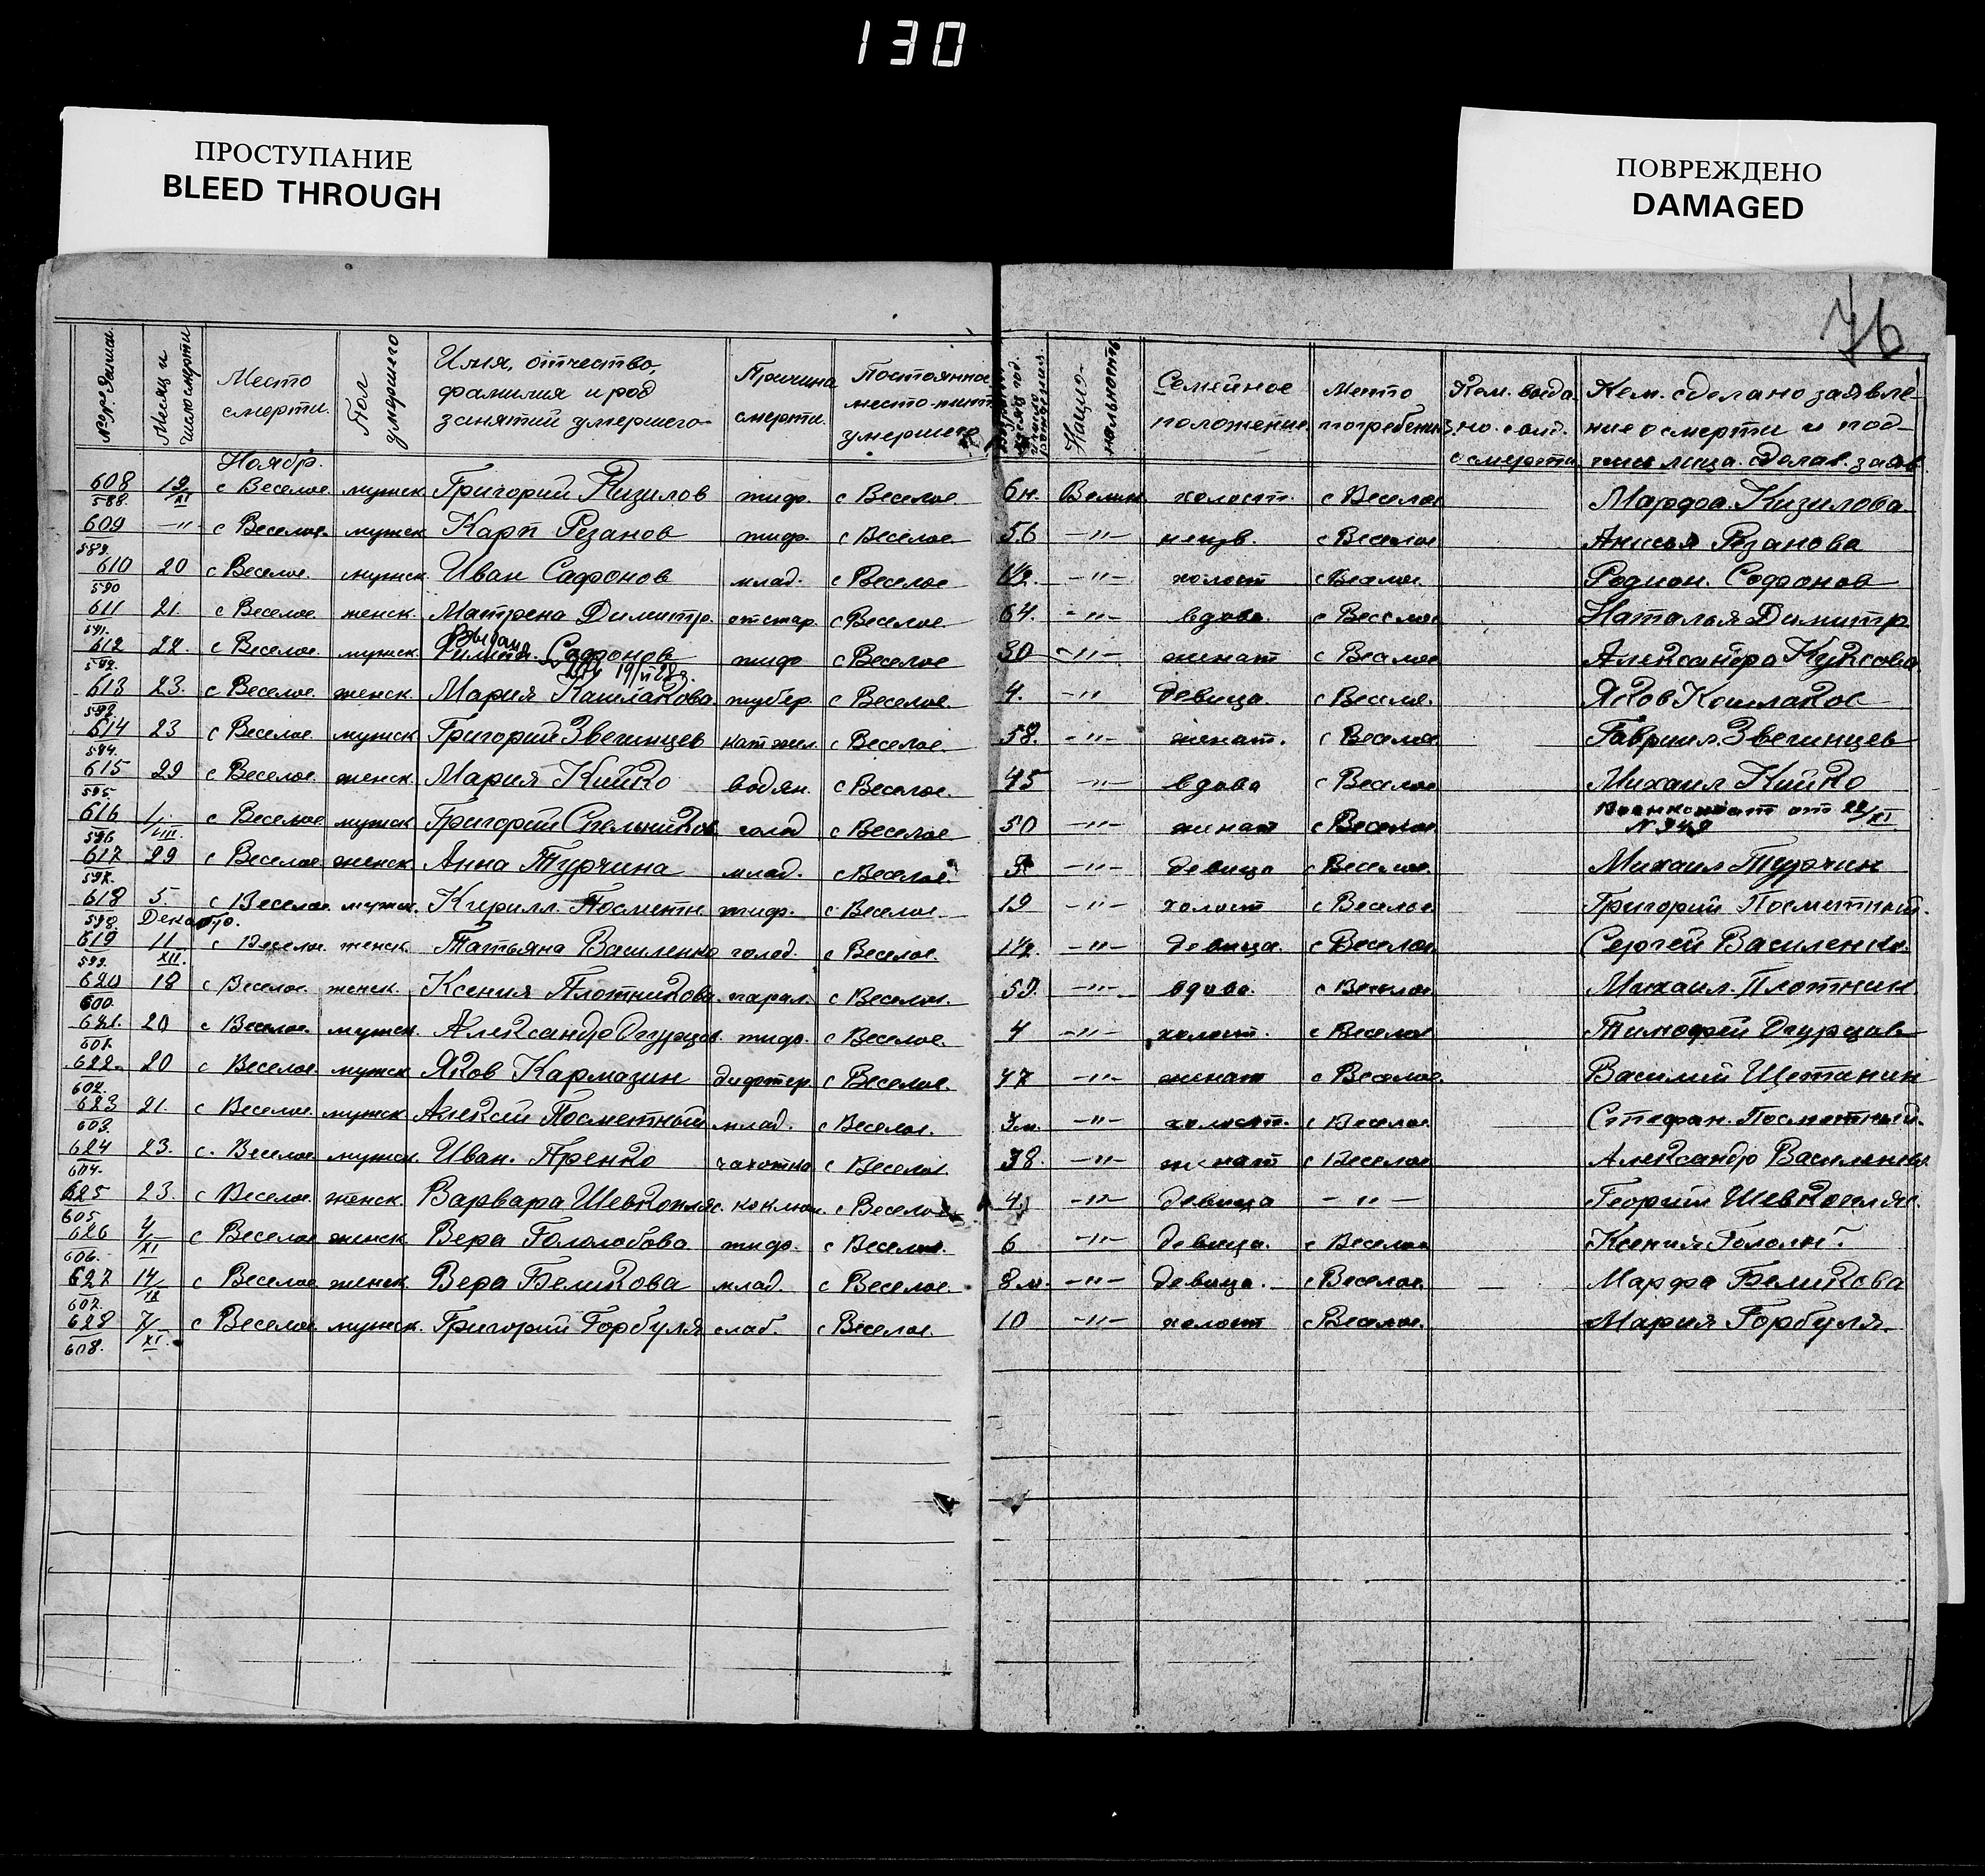 130
ПРОСТУПАНИЕ
BLEED THROUGH
ПОВРЕЖДЕНО
DAMAGED
76
Месяц и число смерти
Место смерти
Пол умершего
Имя, отчество, фамилия и род занятий умершего
Причина смерти
Постоянное место умершего
Национальность
Семейное положение
Место погребения
Кем сделано заявление о смерти и под
Ноябр.
608 588. 19/XI с Веселое мужск. Григорий Кизилов тиф. с Веселое 6 н. Велик. холост. с Веселое Марфа Кизилова
609 589. —"— с Веселое. мужск Карп Резанов тиф. с Веселое 56 —"— с Веселое Анисья Резанова
610 590 20 с Веселое. мужск. Иван Сафонов млад. с Веселое 1/2. —"— холост с Веселое Родион. Сафонов
611 591. 21. с Веселое. женск. Матрена Димитр. от стар. с Веселое 64. —"— вдова. с Веселое Наталья Димитр
612 592. 22. с Веселое. мужск Филипп. Сафонов тиф с Веселое 30 —"— женат с Веселое Александра
613 593 23. с Веселое. женск. Мария Кашлакова. тубер. с Веселое 4. —"— девица. с Веселое. Яков Кошлаков
614 594. 23 с Веселое. мужск Григорий Звегинцев с Веселое 58. —"— женат. с Веселое Гавриил. Звегинцев
615 595. 29 с Веселое. женск. Мария Кийко водян. с Веселое. 45 —"— вдова с Веселое Михаил Кийко
616 596 1/III. с Веселое мужск. Григорий Стельников голод с Веселое 50 —"— женат с Веселое Военкомат от 22/XI N 948
617 597. 29 с Веселое женск. Анна Турчина млад. с Веселое. —"— девица с Веселое. Михаил Турчин
618 598. 5. с Веселое. мужск. Кирилл. Посметн. тиф. с Веселое 19 —"— холост с Веселое Григорий Посметный.
Декабр.
619 599. 11/XII. с Веселое женск. Татьяна Василенко голод. с Веселое. 1/2. —"— девица. с Веселое. Сергей Василенко.
620 600. 18 с Веселое. женск. Ксения Плотникова. парал. с Веселое. 59. —"— вдова. с Веселое Михаил. Плотник
621. 601. 20 с Веселое мужск. Александр Огурцов. тиф. с Веселое. 4 —"— холост. с Веселое Тимофей Огурцов
622. 602. 20 с Веселое. мужск Яков Кармазин дифтер. с Веселое. 47 —"— женат с Веселое. Василий Щетинин
623 603. 21. с Веселое мужск. Алексей Посметный млад. с Веселое. 7 м. —"— холост. с Веселое Стефан. Посметный.
624 604. 23. с. Веселое мужск. Иван. Пренко чахотка с Веселое 38. —"— женат с Веселое Александр Василенко
625 605. 23. с Веселое женск. Варвара Шевкопляс. коклюш. с Веселое 4. —"— девица —"— Георгий Шевкопляс.
626 606. 4/XI с Веселое женск. Вера Гололобова тиф. с Веселое. 6 —"— девица. с Веселое Ксения Гололоб.
627 607. 14/IX с Веселое женск. Вера Беликова млад. с Веселое. 8 м. —"— девица. с Веселое. Марфа Беликова
628 608. 7/XI. с Веселое мужск. Григорий Горбуля слаб. с Веселое. 10 —"— холост с Веселое. Мария Горбуля.